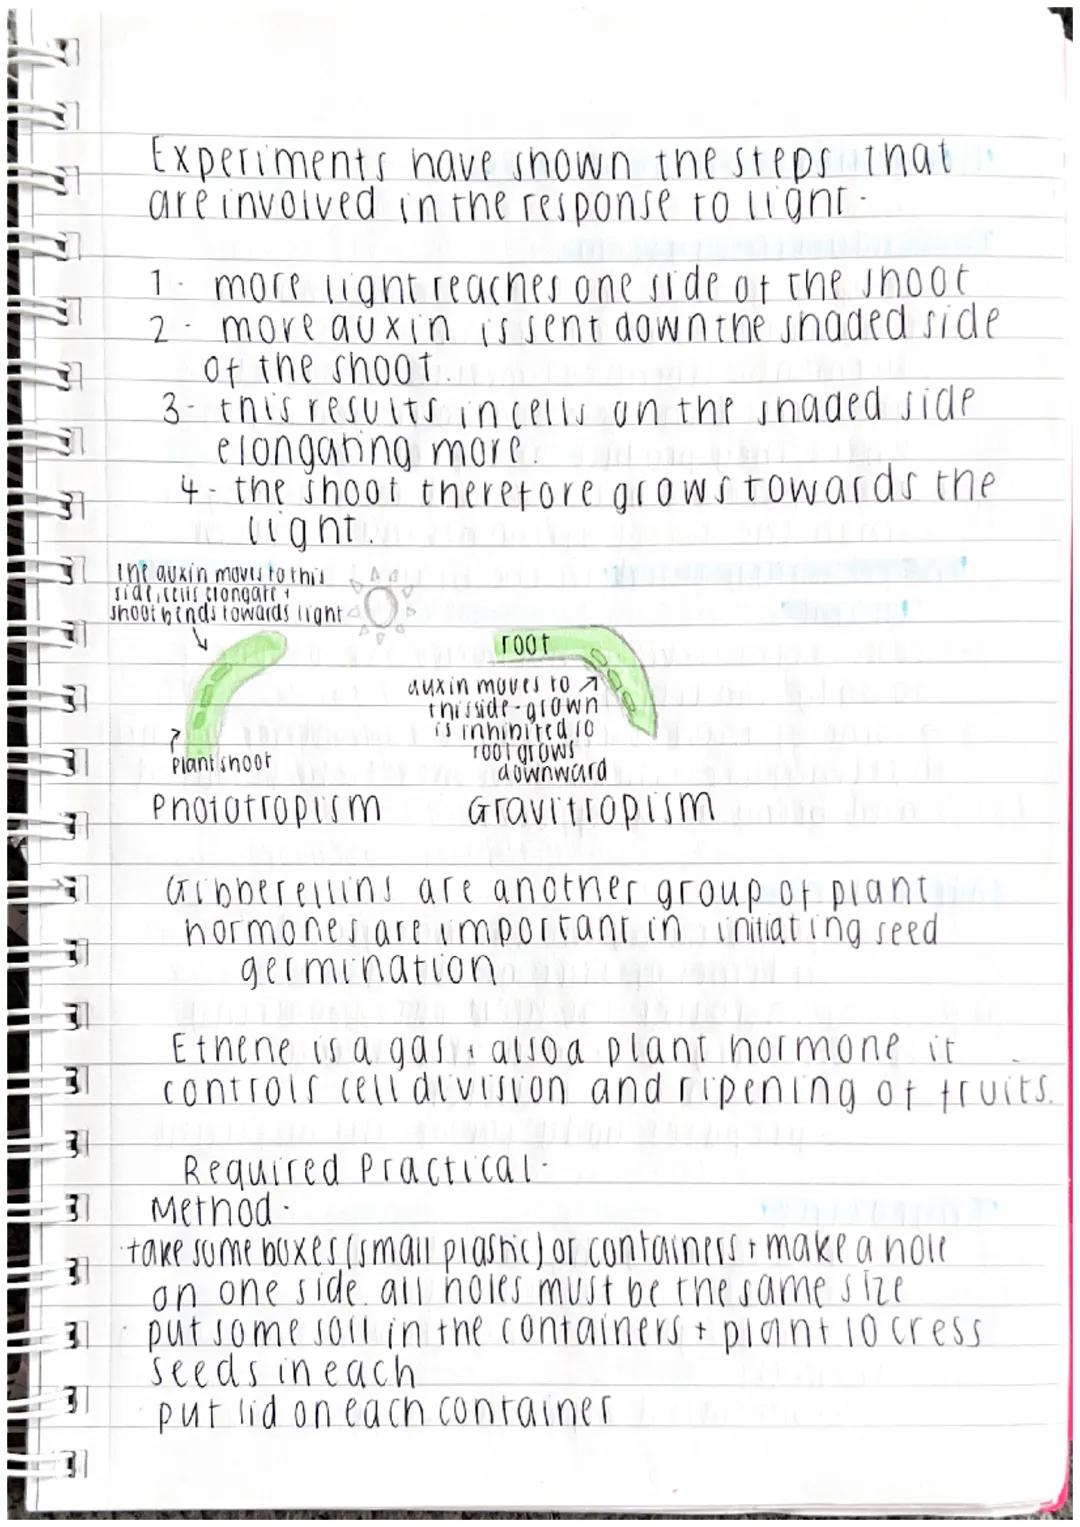 Experiments have shown the steps that
are involved in the response to light.
1. more light reaches one side of the shoot
2. more auxin is sent down the shaded side
of the shoot.
3. this results in cells on the shaded side
elongating more.
4. the shoot therefore grows towards the
light.
the auxin moves to this
side, cells elongate +
shoot bends towards light
root
auxin moves to
this side-grown
is inhibited so
root grows
downward
plant shoot
Phototropism Gravitropism
Gibberellins are another group of plant
hormones are important in initiating seed
germination
Ethene is a gas + also a plant hormone it
controls cell division and ripening of fruits.
Required Practical.
Method.
take some boxes (small plastic) or containers + make a hole
on one side. all holes must be the same size
put some soil in the containers + plant 10 cress
seeds in each
put lid on each container